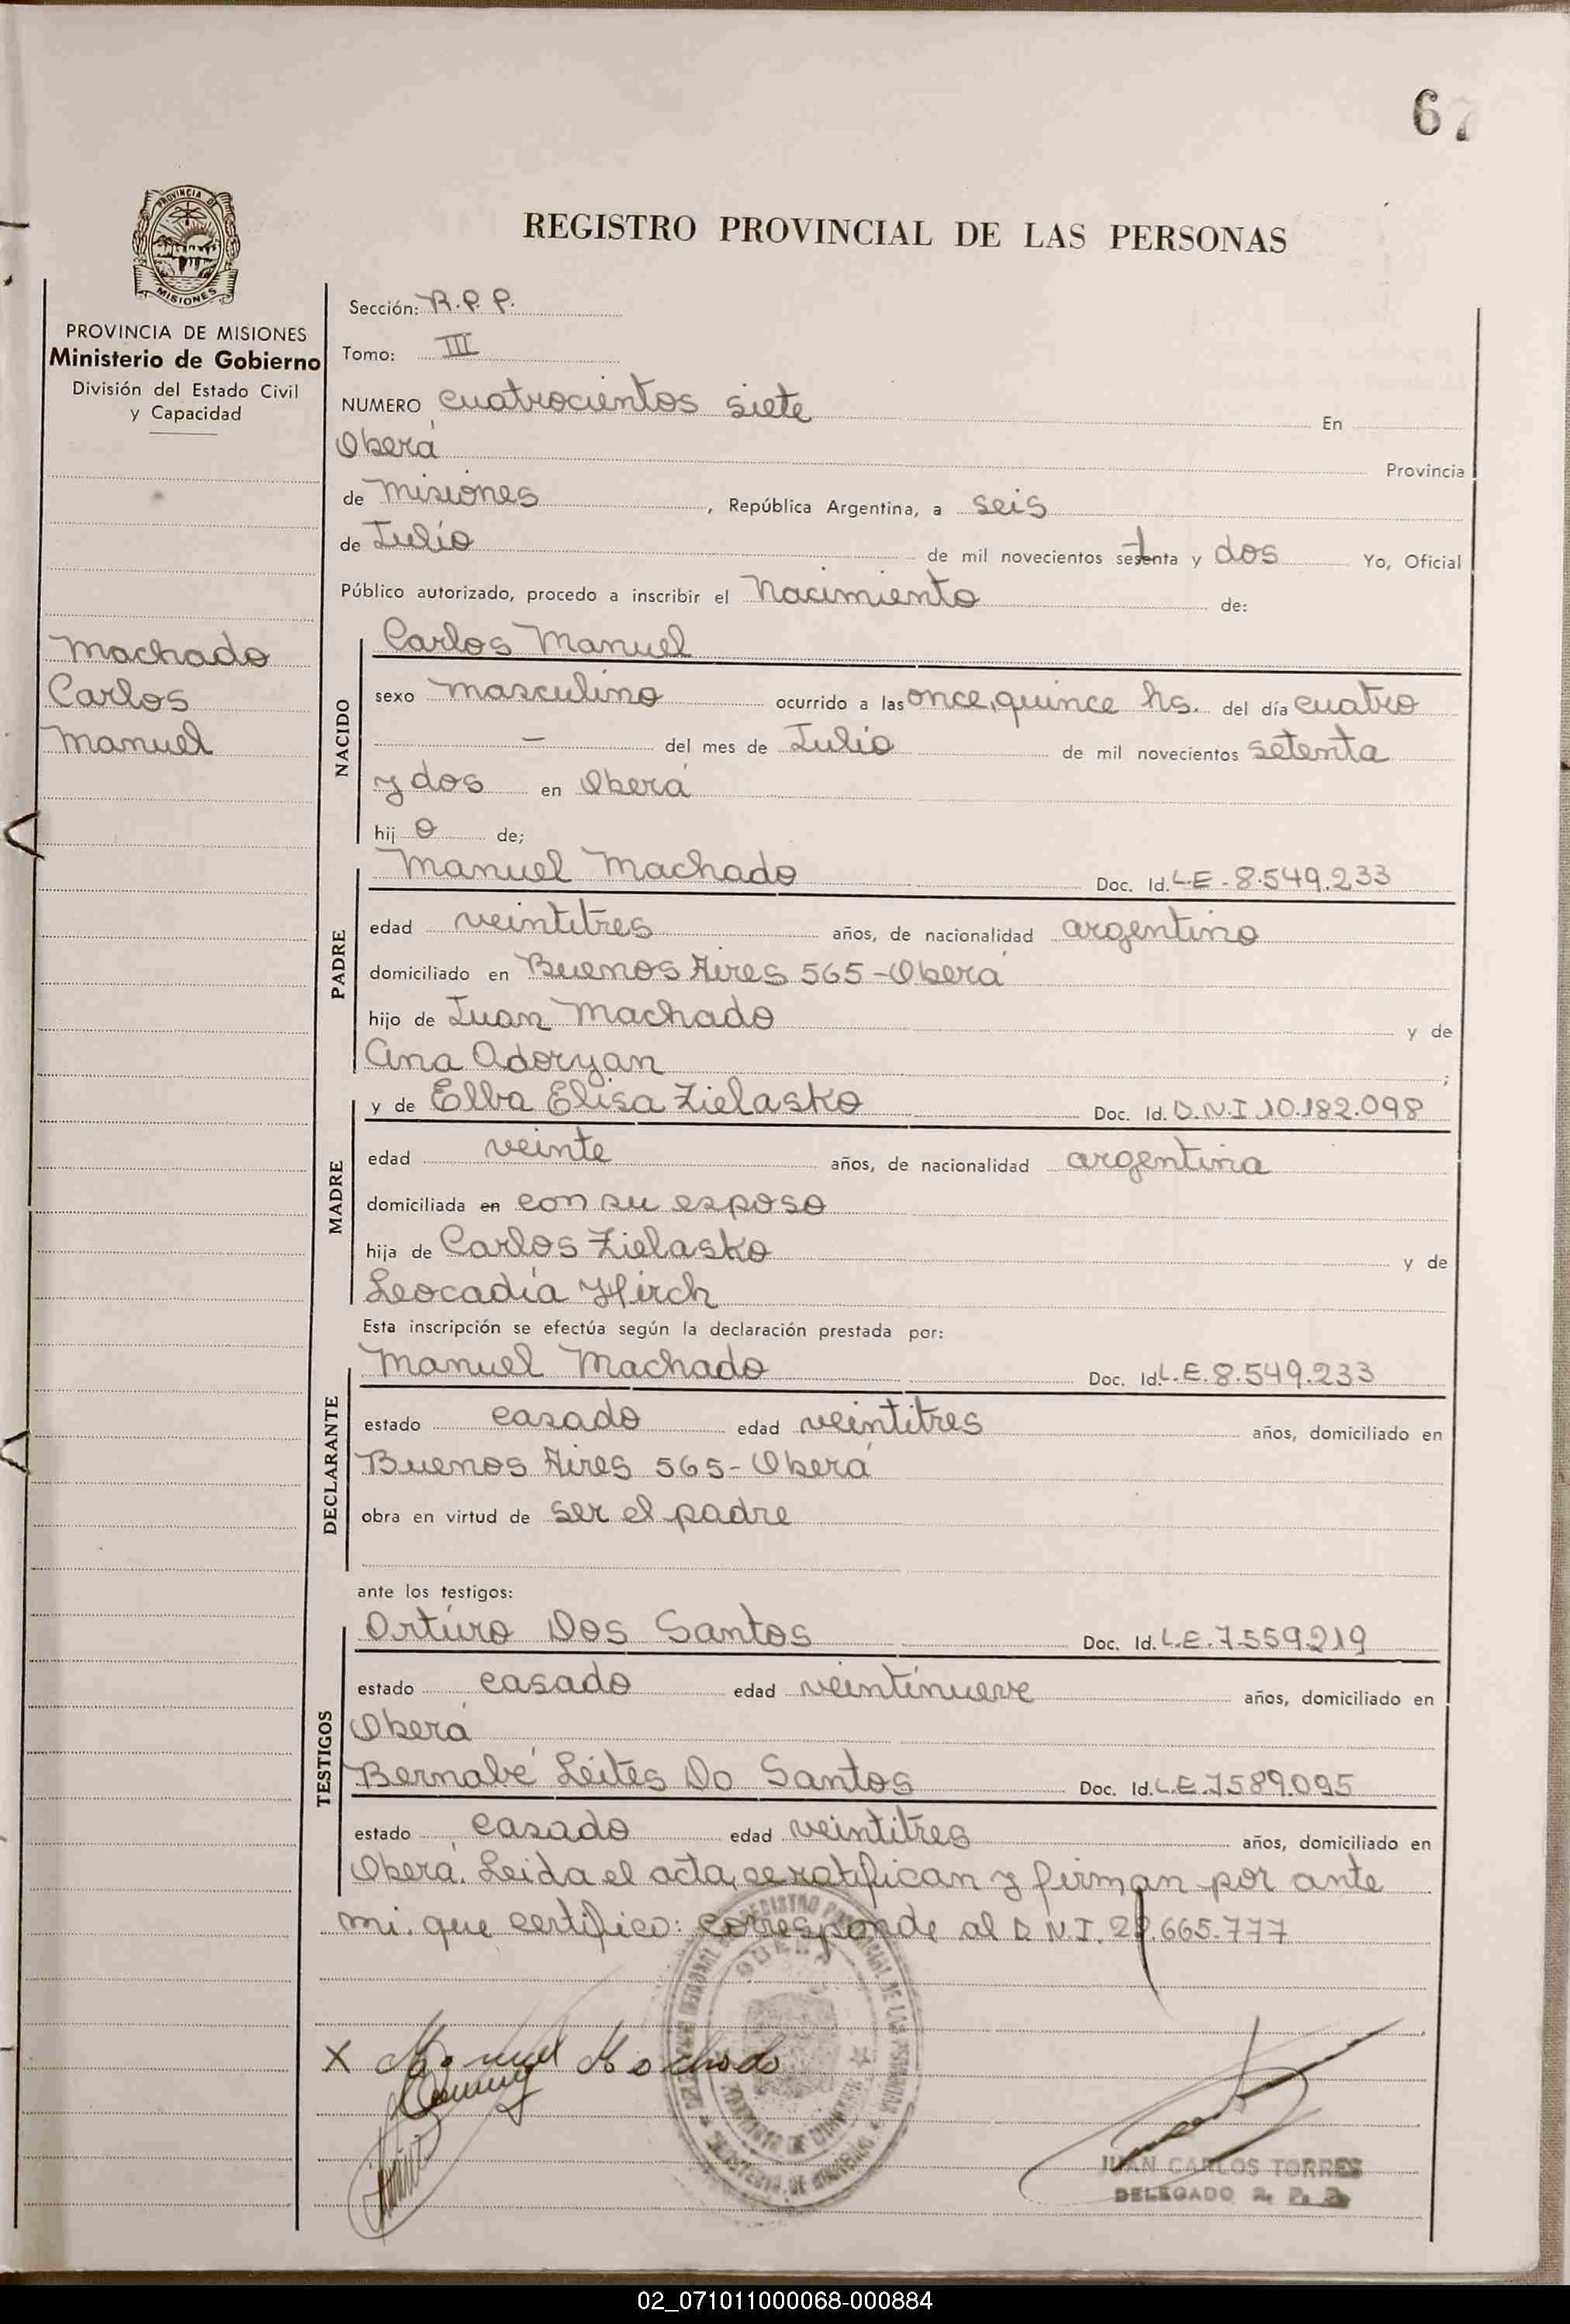 67
REGISTRO PROVINCIAL DE LAS PERSONAS
PROVINCIA DE MISIONES
MISIONES
PROVINCIA DE MISIONES
Ministerio de Gobierno
División del Estado Civil
y Capacidad
Machado
Carlos
Manuel
Sección: R.P.P.
Tomo: III
NUMERO cuatrocientos siete En
Oberá Provincia
de Misiones, República Argentina, a seis
de Julio de mil novecientos setenta y dos Yo, Oficial
Público autorizado, procedo a inscribir el Nacimiento de:
NACIDO
Carlos Manuel
sexo masculino ocurrido a las once, quince hs. del día cuatro
— del mes de Julio de mil novecientos setenta
y dos en Oberá
hijo de;
PADRE
Manuel Machado Doc. Id. L.E. 8.549.233
edad veintitres años, de nacionalidad argentino
domiciliado en Buenos Aires 565-Oberá
hijo de Juan Machado y de
Ana Adoryan ;
MADRE
y de Elba Elisa Zielasko Doc. Id. D.N.I 10.182.098
edad veinte años, de nacionalidad argentina
domiciliada en con su esposo
hija de Carlos Zielasko y de
Leocadia Hirch
Esta inscripción se efectúa según la declaración prestada por:
DECLARANTE
Manuel Machado Doc. Id. L.E. 8.549.233
estado casado edad veintitres años, domiciliado en
Buenos Aires 565-Oberá
obra en virtud de ser el padre
ante los testigos:
TESTIGOS
Arturo Dos Santos Doc. Id. L.E. 7.559.219
estado casado edad veintinueve años, domiciliado en
Oberá
Bernabé Leites Do Santos Doc. Id. L.E. 7589.095
estado casado edad veintitres años, domiciliado en
Oberá. Leida el acta, se ratifican y firman por ante
mi. que certifico: corresponde al D.N.I. 22.665.777
X Manuel Machado
JUAN CARLOS TORRES
DELEGADO R. P. P.
02_071011000068-000884